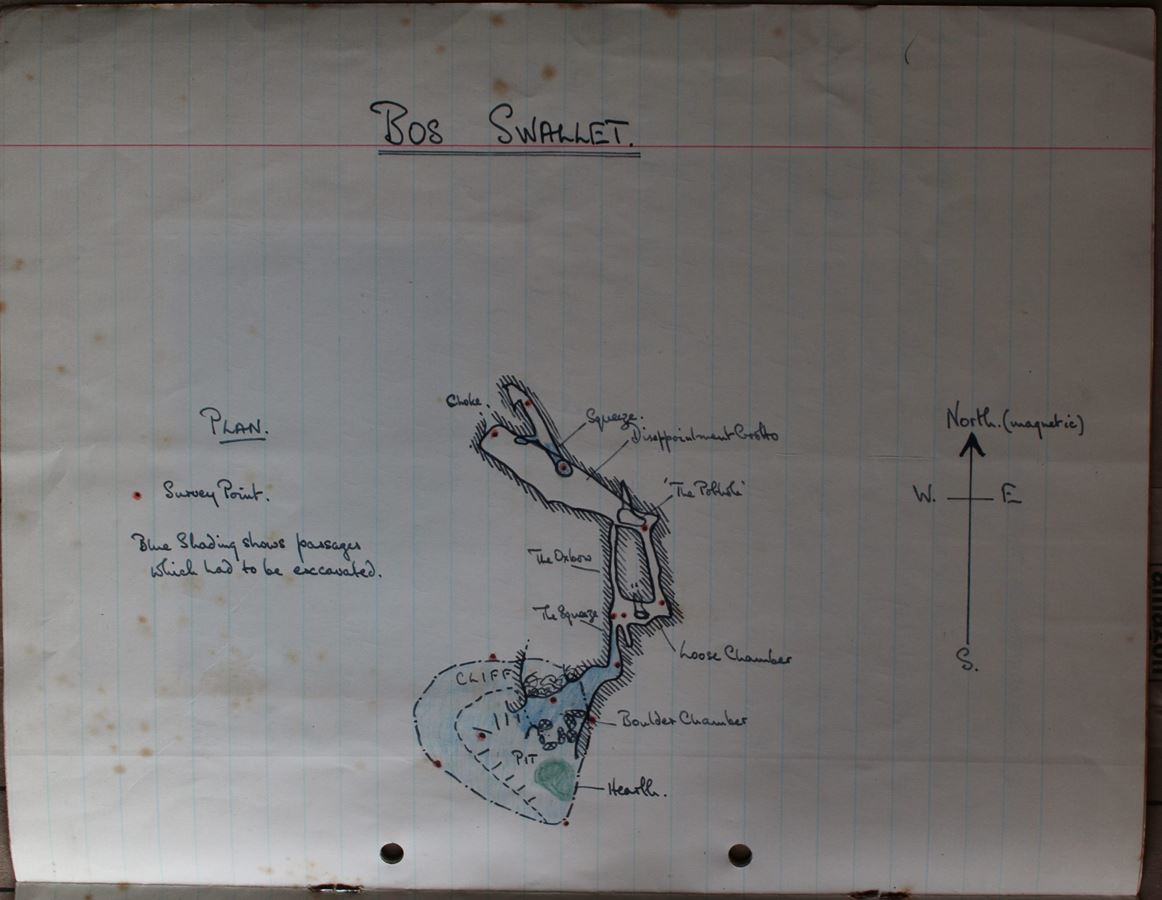 BOS SWALLET.
PLAN.
Survey Point.
Blue Shading shows passages
which had to be excavated.
Choke.
Squeeze.
Disappointment Grotto
'The Pothole'
The Oxbow
The Squeeze
Loose Chamber
CLIFF
Boulder Chamber
PIT
Hearth.
North. (magnetic)
W. E
S.
amazon